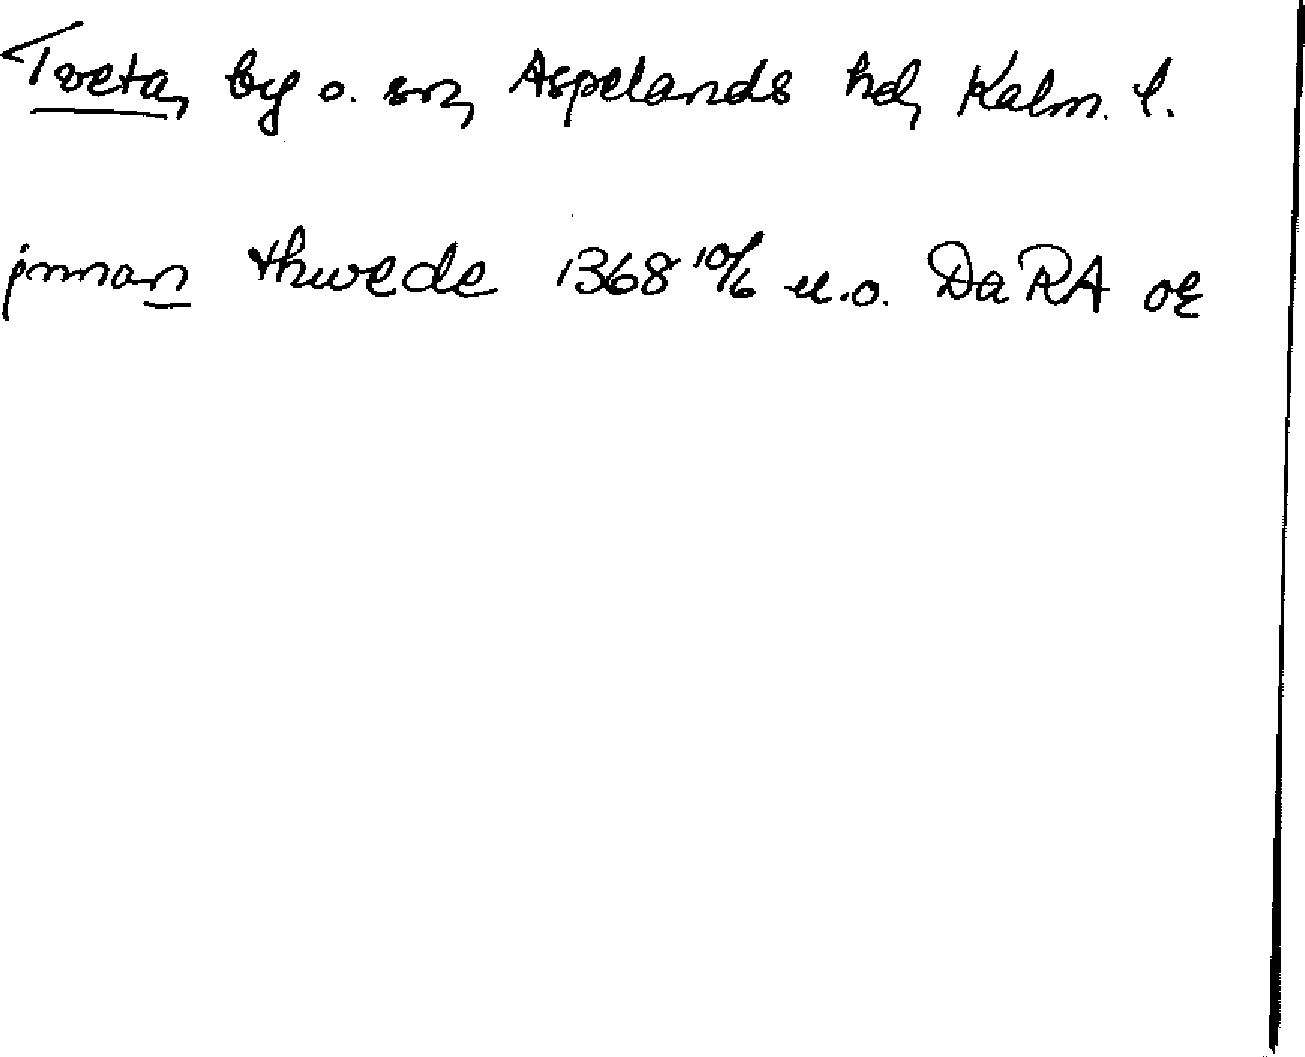 Tveta, by o. sn, Aspelands hd, Kalm. l.
jnnan thwede 1368 10/6 u.o. DaRA or